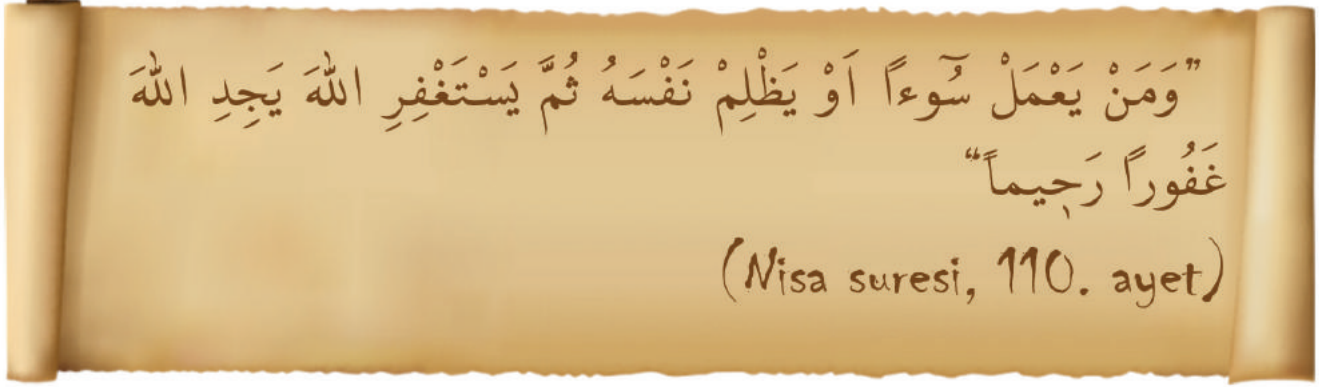 ”وَمَنْ يَعْمَلْ سُٓوءاً اَوْ يَظْلِمْ نَفْسَهُ ثُمَّ يَسْتَغْفِرِ اللّٰهَ يَجِدِ اللّٰهَ
غَفُوراً رَح۪يماً“
(Nisa suresi, 110. ayet)